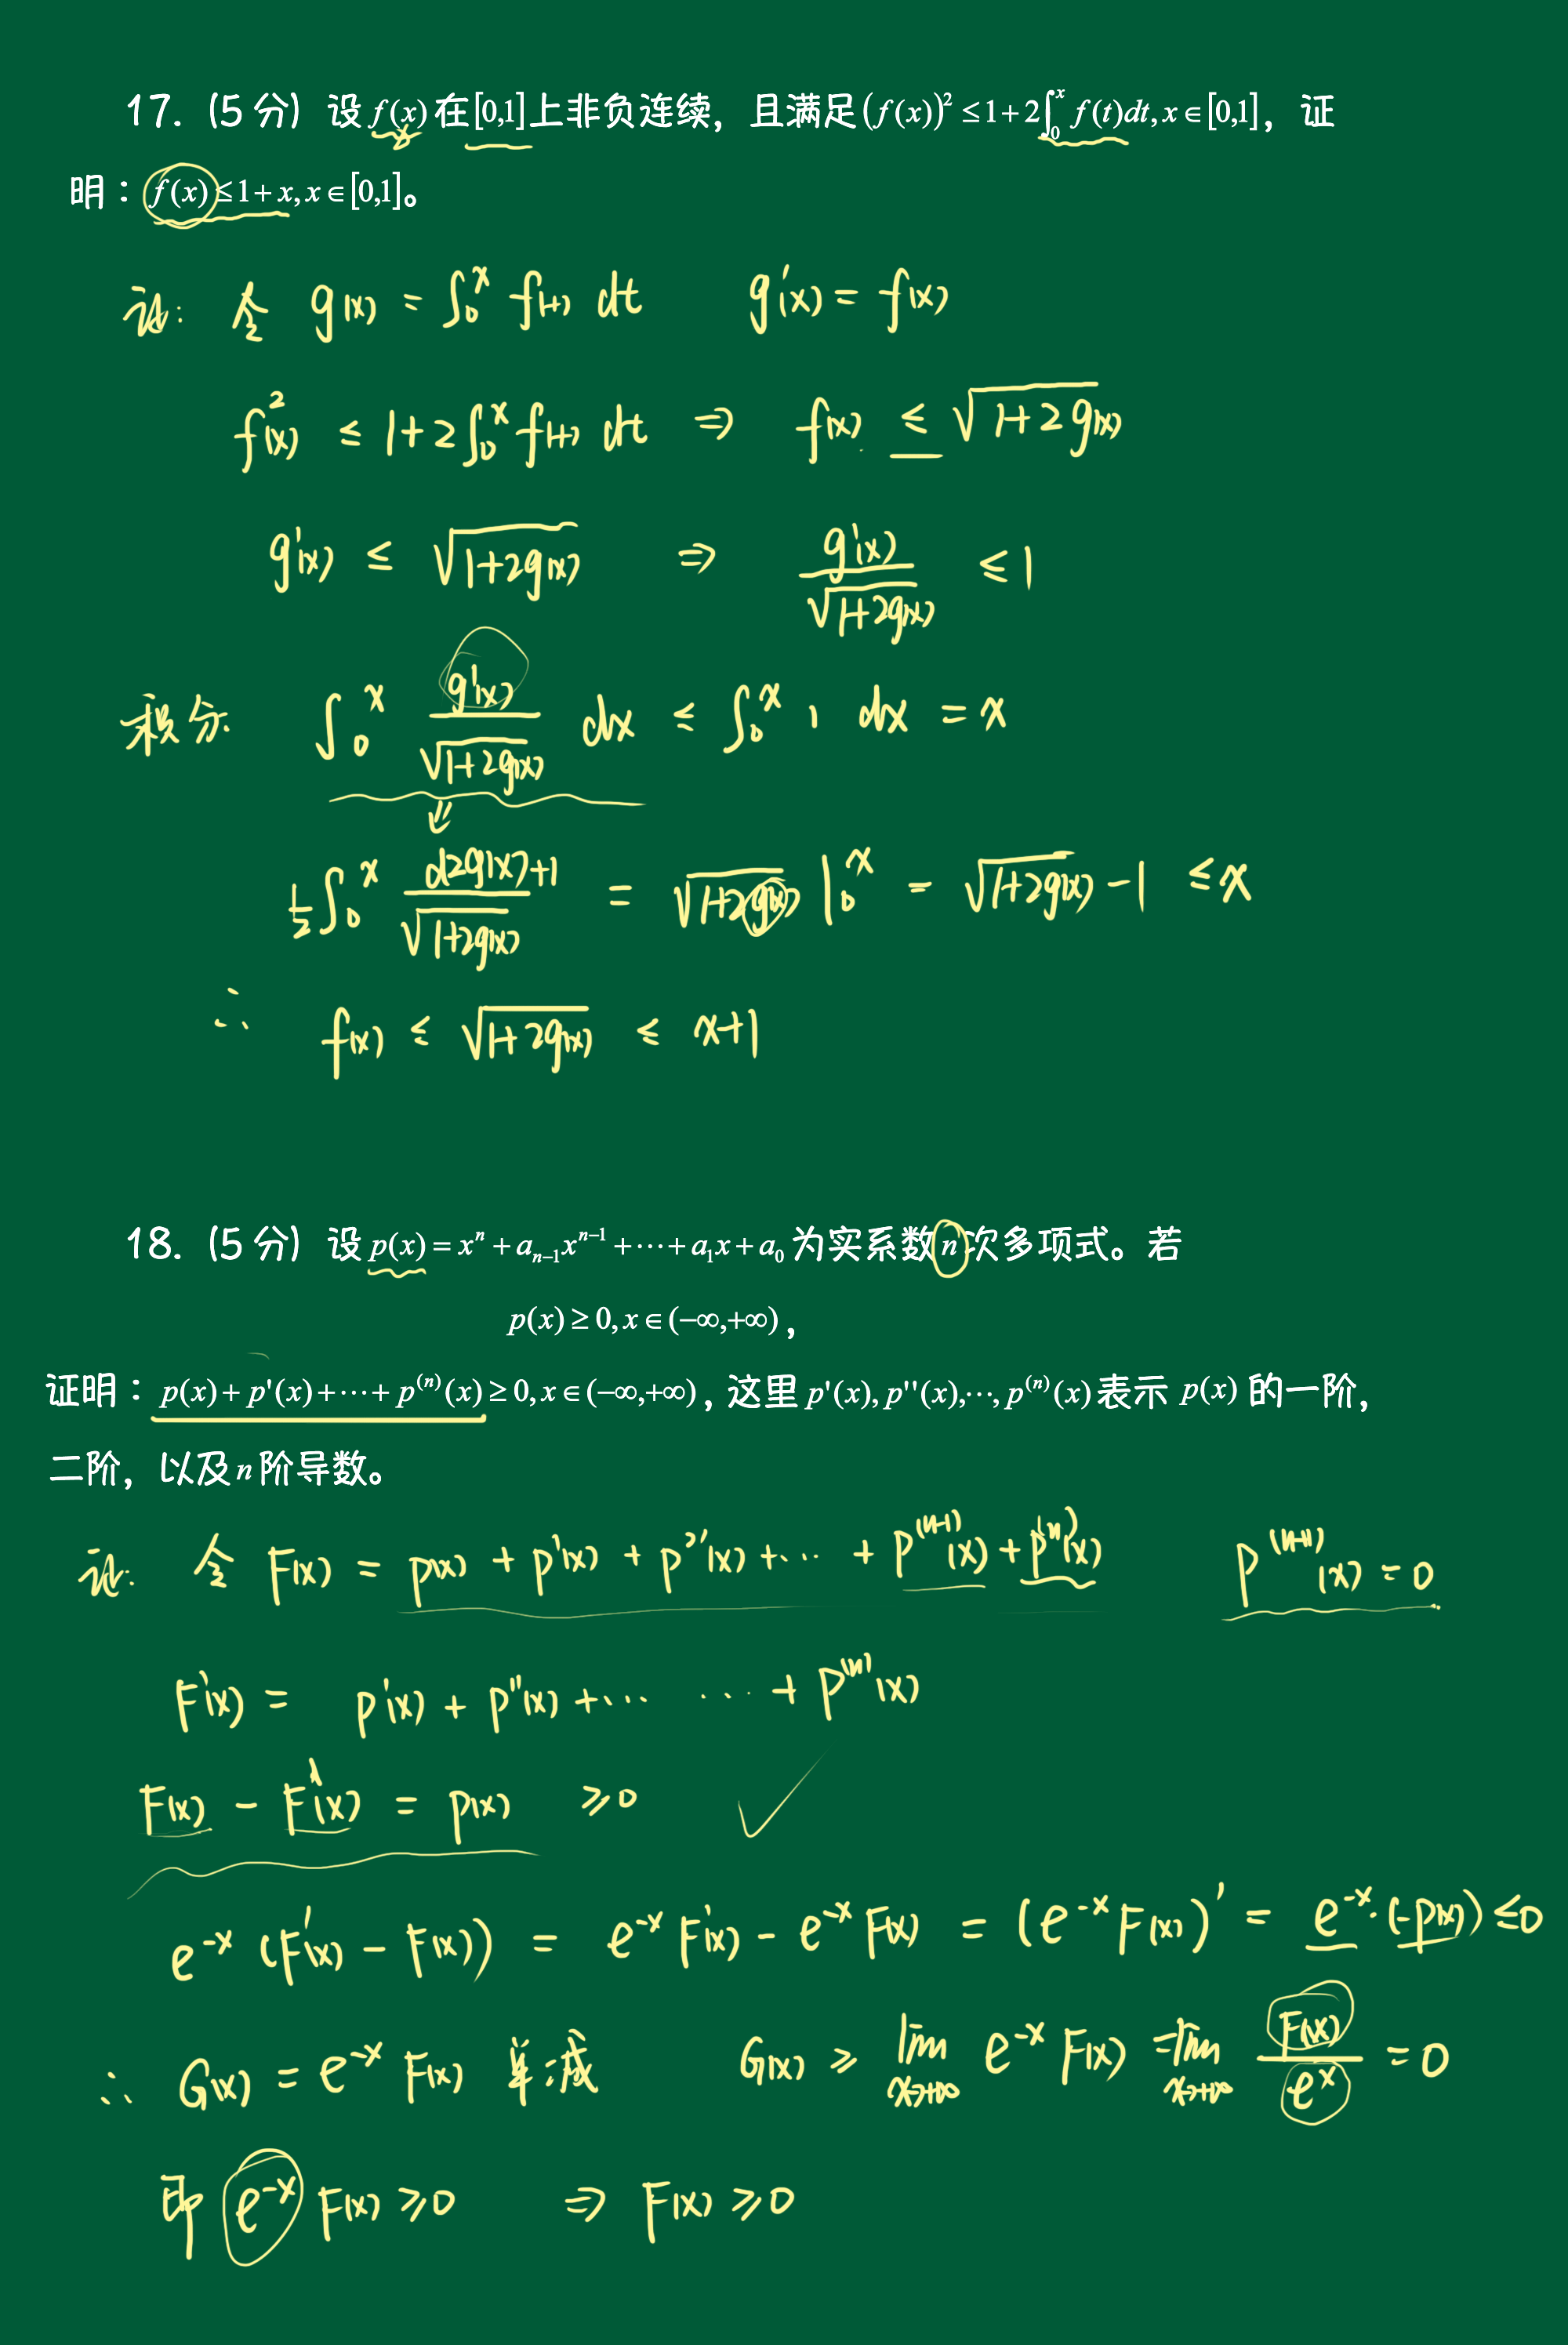 17. (5分) 设 f(x) 在 [0,1] 上非负连续，且满足 (f(x))² ≤ 1+2∫₀ˣ f(t)dt, x∈[0,1]，证
明：f(x) ≤ 1+x, x∈[0,1]。
证: 令 g(x) = ∫₀ˣ f(t) dt    g'(x) = f(x)
f²(x) ≤ 1+2∫₀ˣ f(t) dt ⇒ f(x) ≤ √(1+2g(x))
g'(x) ≤ √(1+2g(x)) ⇒ g'(x)/√(1+2g(x)) ≤ 1
积分. ∫₀ˣ g'(x)/√(1+2g(x)) dx ≤ ∫₀ˣ 1 dx = x
⇓
½∫₀ˣ d2g(x)+1/√(1+2g(x)) = √(1+2g(x)) |₀ˣ = √(1+2g(x)) - 1 ≤ x
∴ f(x) ≤ √(1+2g(x)) ≤ x+1
18. (5分) 设 p(x) = xⁿ + aₙ₋₁xⁿ⁻¹ + ⋯ + a₁x + a₀ 为实系数 n 次多项式。若
p(x) ≥ 0, x∈(−∞,+∞)，
证明：p(x) + p'(x) + ⋯ + p⁽ⁿ⁾(x) ≥ 0, x∈(−∞,+∞)，这里 p'(x), p''(x),⋯, p⁽ⁿ⁾(x) 表示 p(x) 的一阶，
二阶，以及 n 阶导数。
证: 令 F(x) = p(x) + p'(x) + p''(x) + ⋯ + p⁽ⁿ⁻¹⁾(x) + p⁽ⁿ⁾(x)    p⁽ⁿ⁺¹⁾(x) = 0
F'(x) = p'(x) + p''(x) + ⋯ ⋯ + p⁽ⁿ⁾(x)
F(x) − F'(x) = p(x) ≥ 0 ✓
e⁻ˣ (F'(x) − F(x)) = e⁻ˣ F'(x) − e⁻ˣ F(x) = (e⁻ˣ F(x))' = e⁻ˣ·(−p(x)) ≤ 0
∴ G(x) = e⁻ˣ F(x) 单减    G(x) ≥ lim x→+∞ e⁻ˣ F(x) = lim x→+∞ F(x)/eˣ = 0
即 e⁻ˣ F(x) ≥ 0 ⇒ F(x) ≥ 0